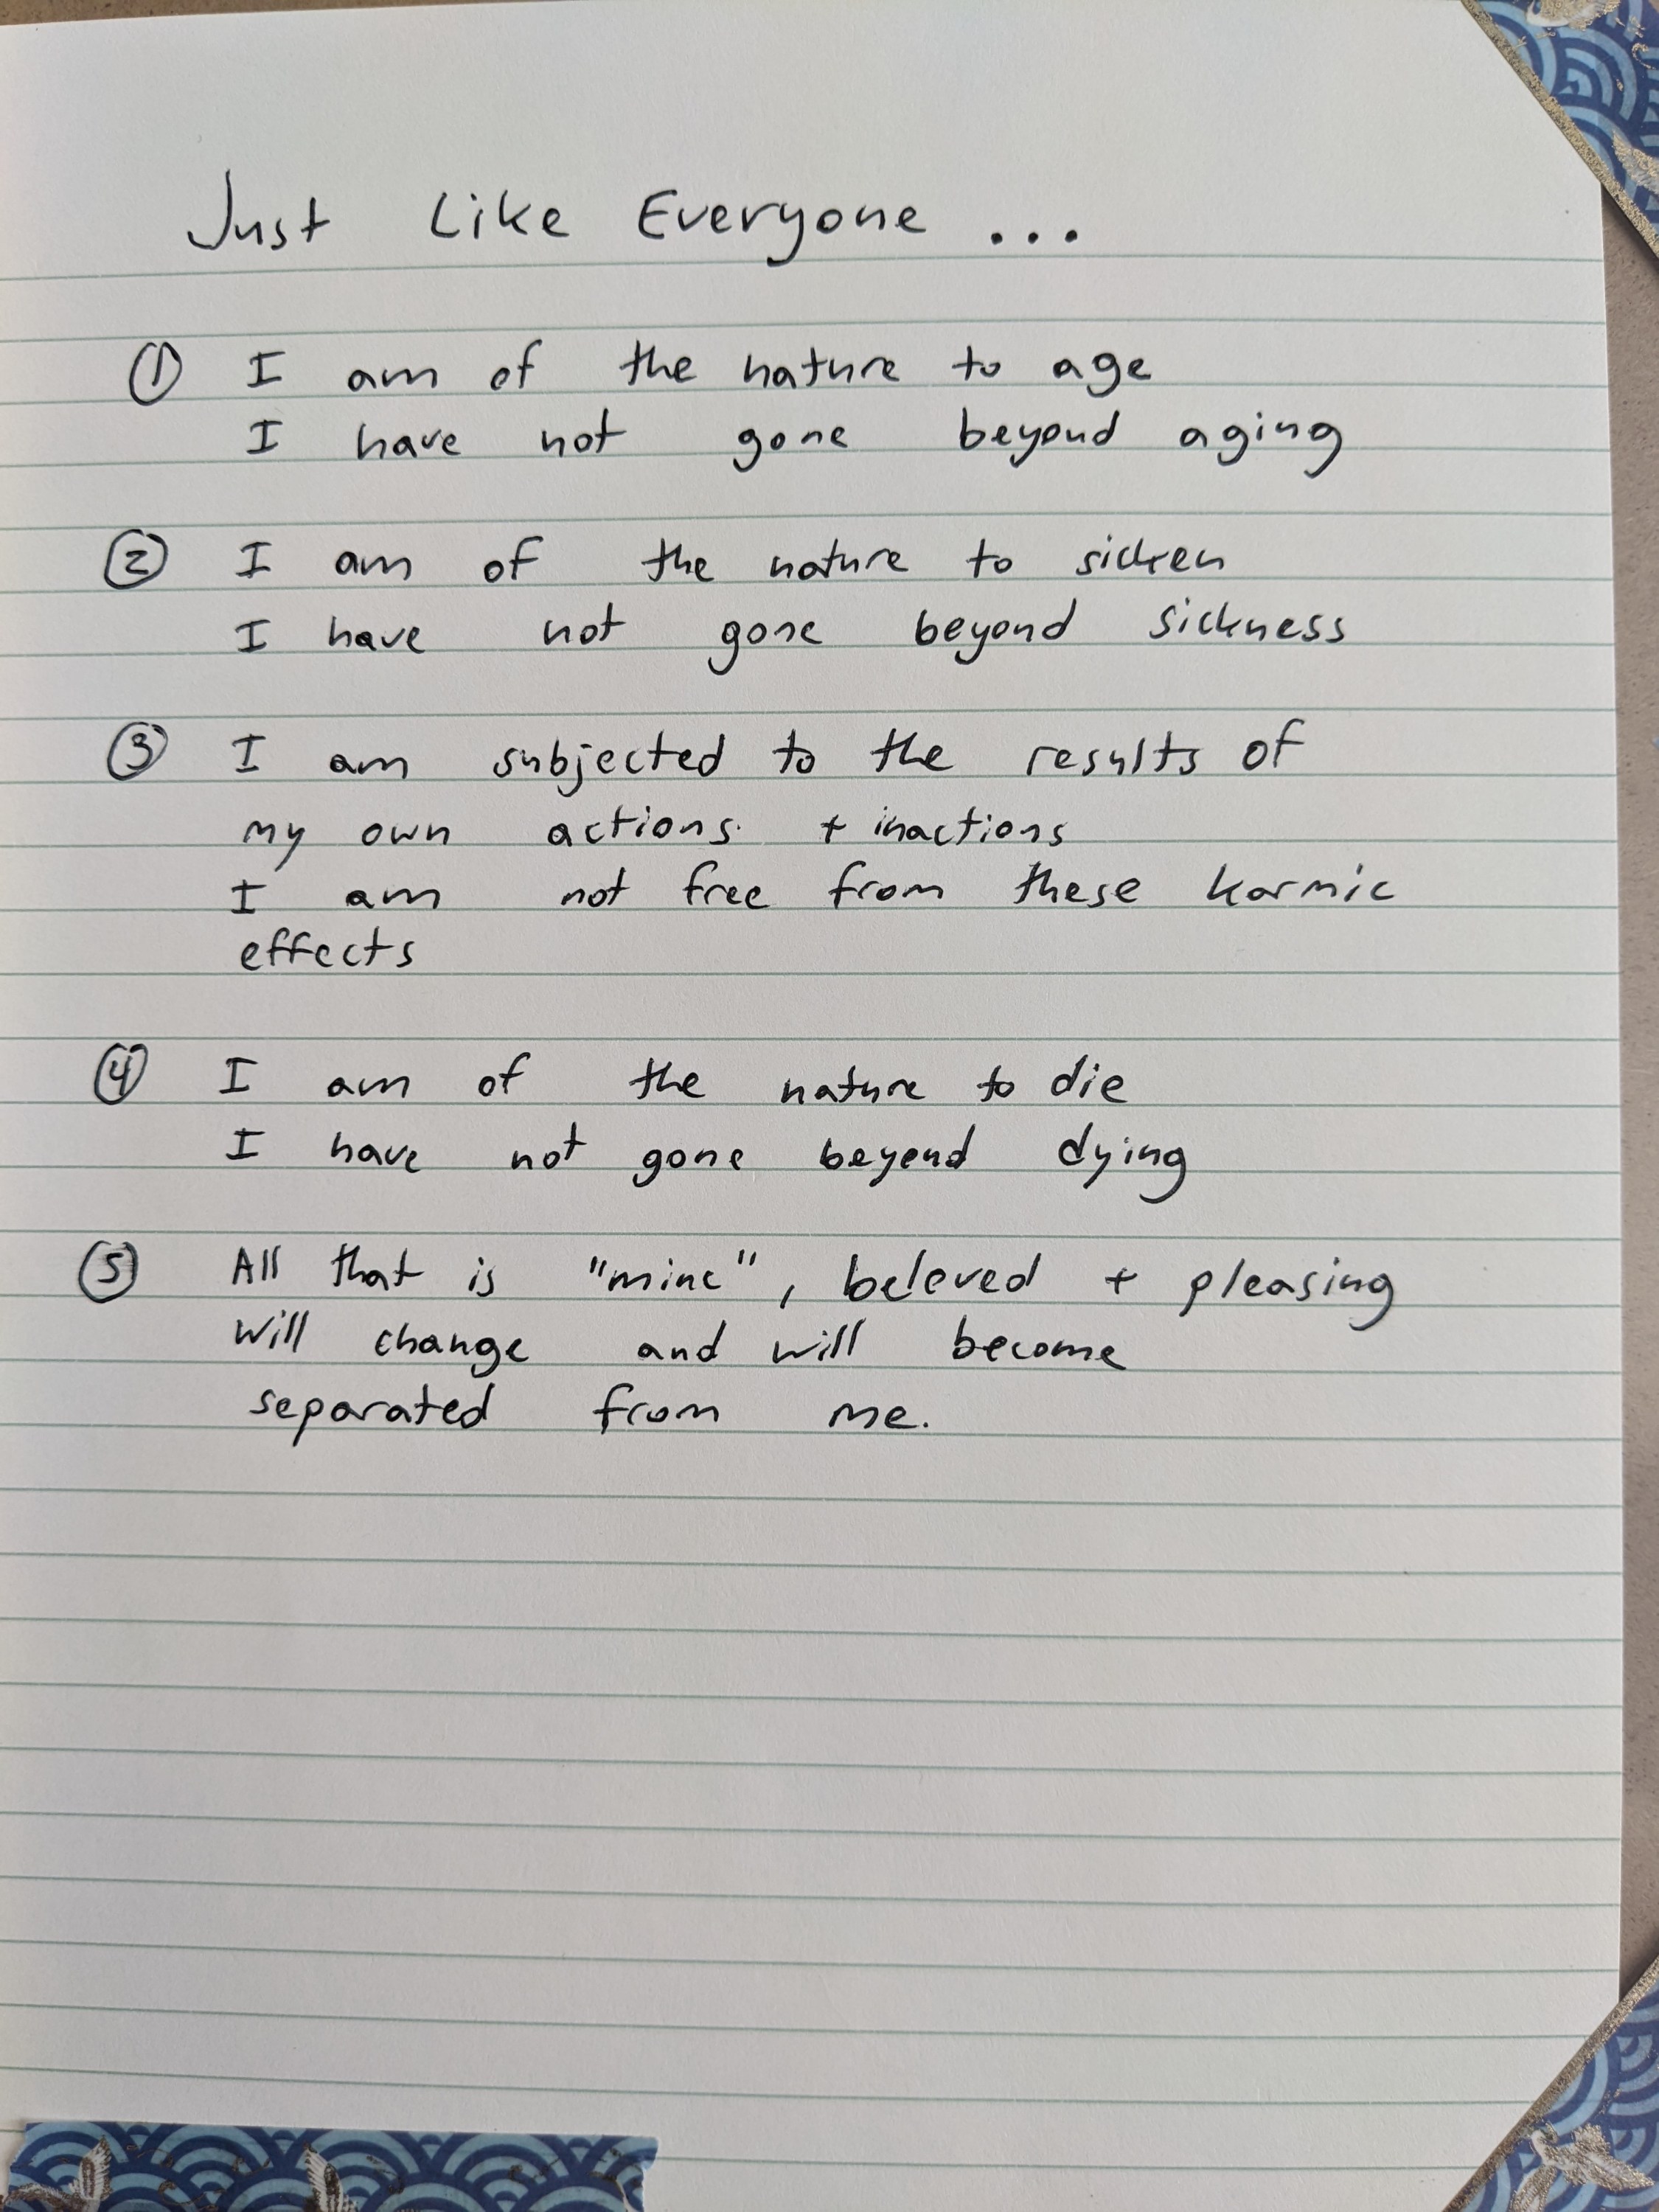 Just Like Everyone ...
① I am of the nature to age
I have not gone beyond aging
② I am of the nature to sicken
I have not gone beyond sickness
③ I am subjected to the results of
my own actions + inactions
I am not free from these karmic
effects
④ I am of the nature to die
I have not gone beyond dying
⑤ All that is "mine", beloved + pleasing
will change and will become
separated from me.